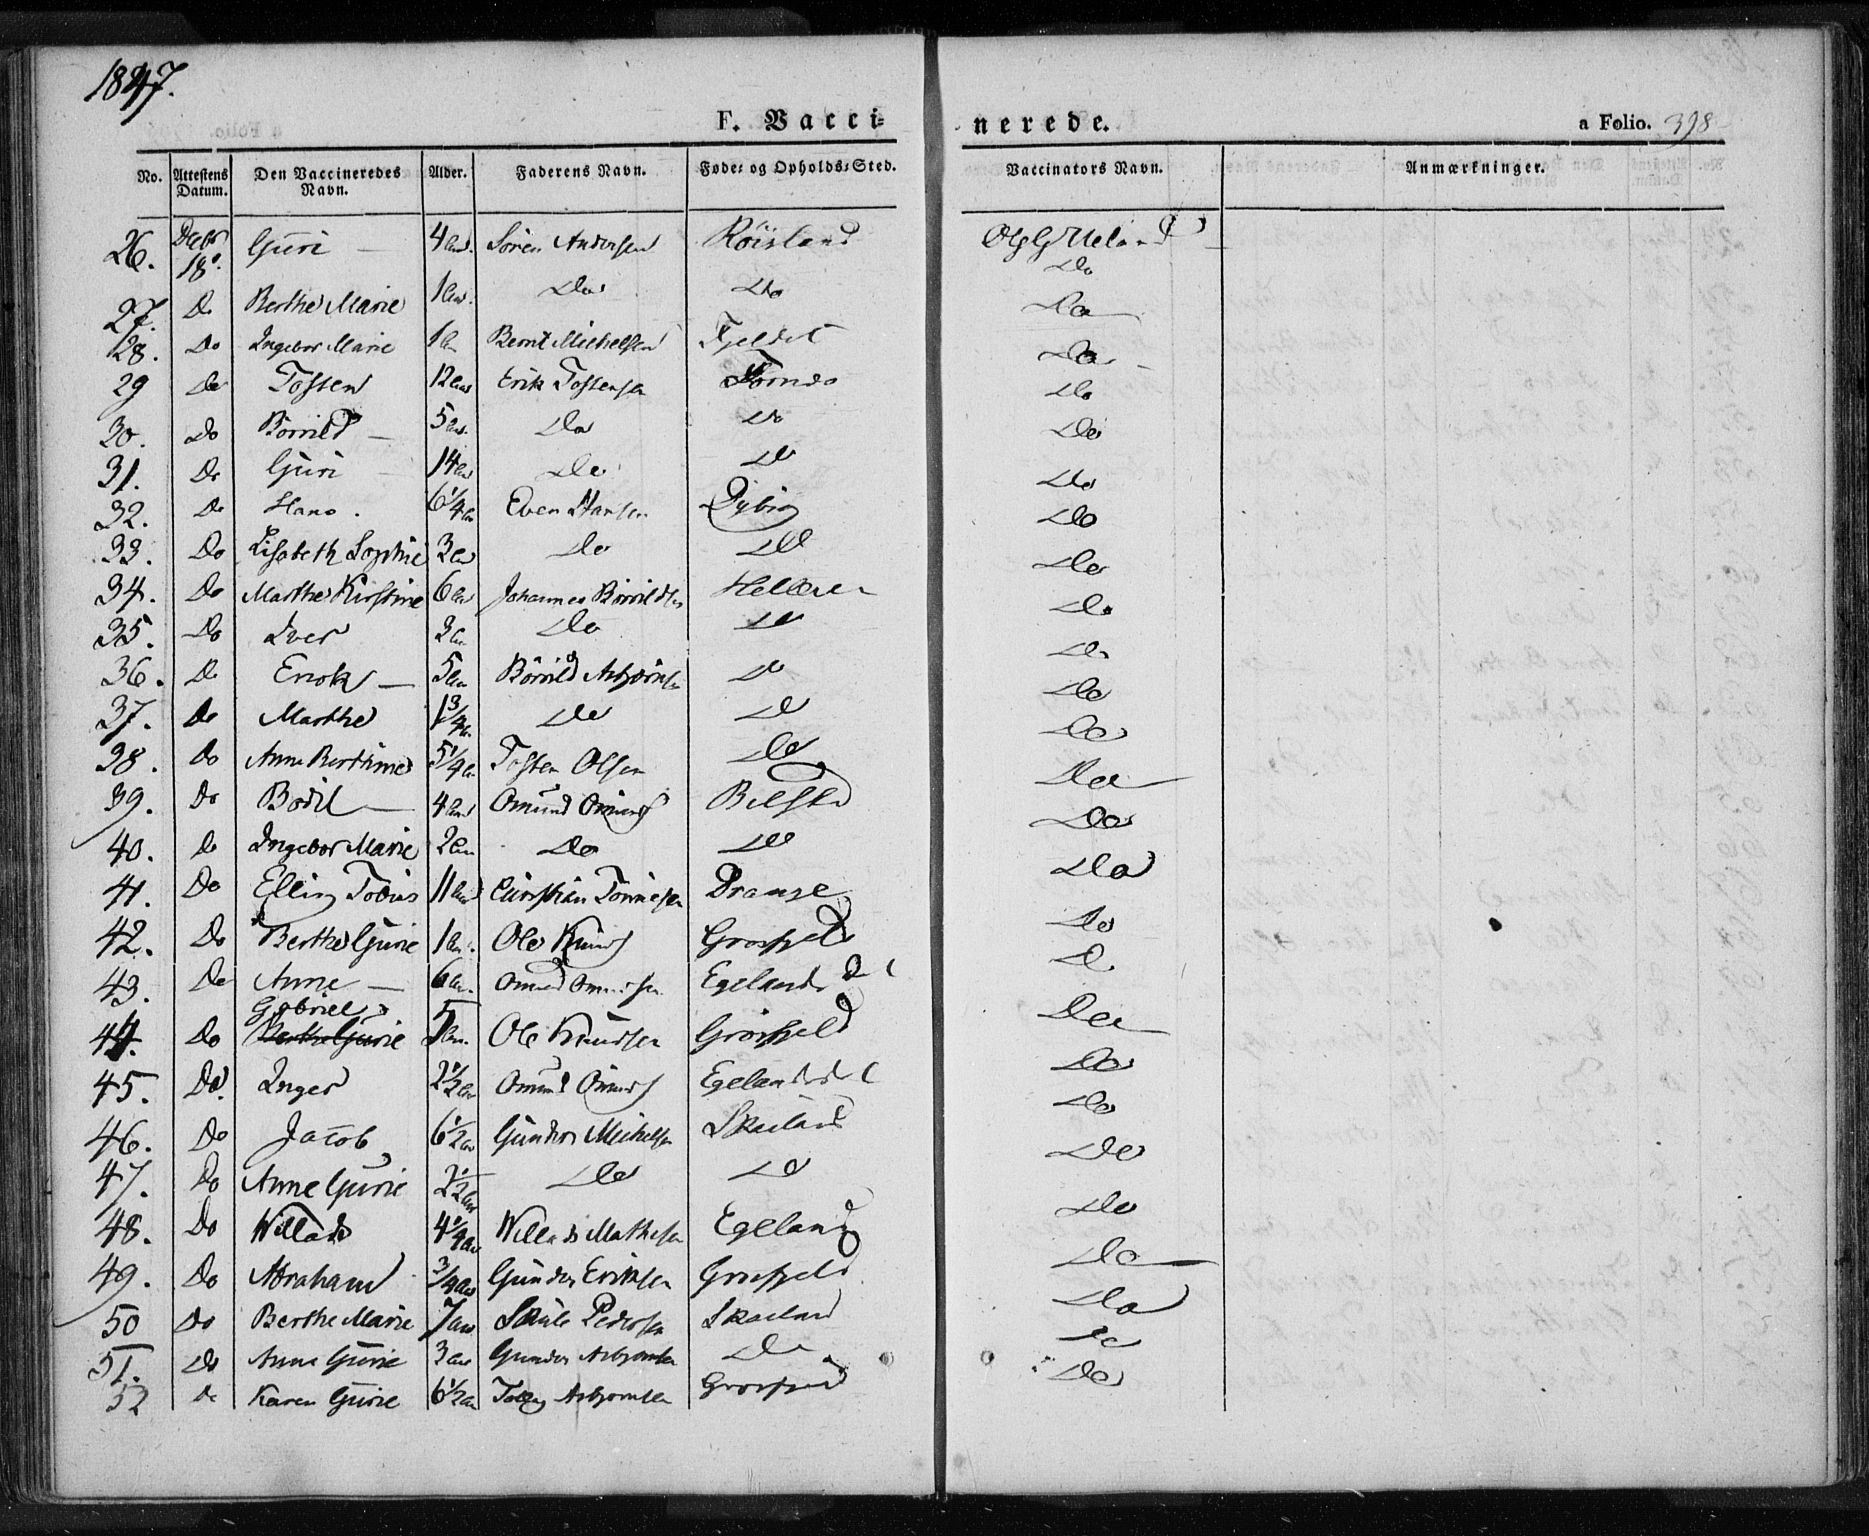 1847.
F. Vacci=
nerede.
a Folio. 398
No. Attestens Datum. Den Vaccineredes Navn. Alder. Faderens Navn. Føde= og Opholds=Sted. Vaccinators Navn. Anmærkninger.
26. Decbr 18. Guri — 4 Sören Andersen Röisland
27. Do Berthe Marie 1 Do Do Do
28. Do Ingebor Marie 1 Bernt Michelsen Fjeldet Do
29 Do Tosten 12 Erik Tostensen Do
30. Do Börrild — 5 Do Do Do
31. Do Guri 14 Do Do Do
32. Do Hans. 6 1/4 Even Hansen Dybing Do
33. Do Lisabeth Sophie 3 Do Do Do
34. Do Marthe Kirstine 6 Johannes Börrildsen Helleren Do
35. Do Iver 3 Do Do Do
36. Do Enok — 5 Börrild Asbjörnsen Do Do
37. Do Marthe 1 3/4 Do Do Do
38. Do Anne Berthine 5 1/4 Tosten Olsen Do Do
39. Do Bodil — 4 Omund Omunds Do
40. Do Ingebor Marie 2 Do Do Do
41. Do Elling Tobias 11 Christian Tönnesen Drange Do
42. Do Berthe Gurie 1 Ole Knuds Grosfjeld Do
43. Do Anne — 6 Omund Omundsen Do
Gabriel
44. Do Berthe Gurie 5 Ole Knudsen Grösfjeld Do
45. Do. Inger 2 1/2 Omund Omunds Do
46. Do Jacob 6 1/2 Gunder Michelsen Skailand Do
47. Do Anne Gurie 2 1/2 Do Do Do
48. Do Willads 4 1/4 Willads Mathisen Egeland Do
49. Do Abraham 3/4 Gunder Eriksen Grosfjeld Do
50 Do Berthe Marie 7 Skule Pedersen Skailand Do
51. Do Anne Gurie 3 Gunder Asbjornsen Do Do
52 Do Karen Gurie 6 1/2 Asbjornsen Grosfjeld Do